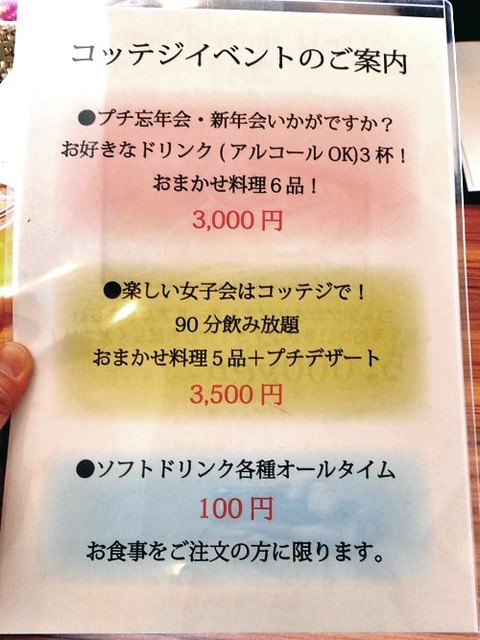 コッテジイベントのご案内
●プチ忘年会・新年会いかがですか？
お好きなドリンク(アルコールOK)3杯！
おまかせ料理6品！
3,000円
●楽しい女子会はコッテジで！
90分飲み放題
おまかせ料理5品＋プチデザート
3,500円
●ソフトドリンク各種オールタイム
100円
お食事をご注文の方に限ります。